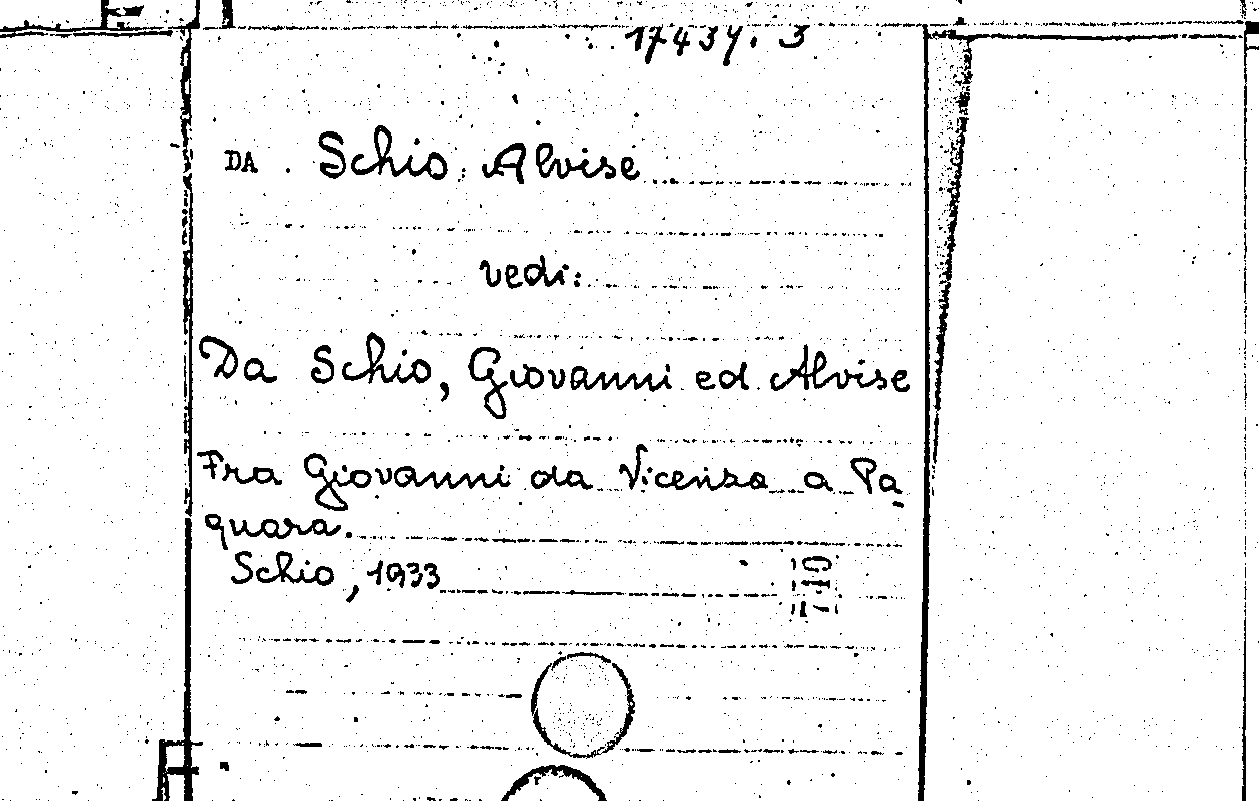 17437. 3
DA Schio Alvise
vedi:
Da Schio, Giovanni ed Alvise
Fra Giovanni da Vicenza a Pa
quara.
Schio, 1933
740